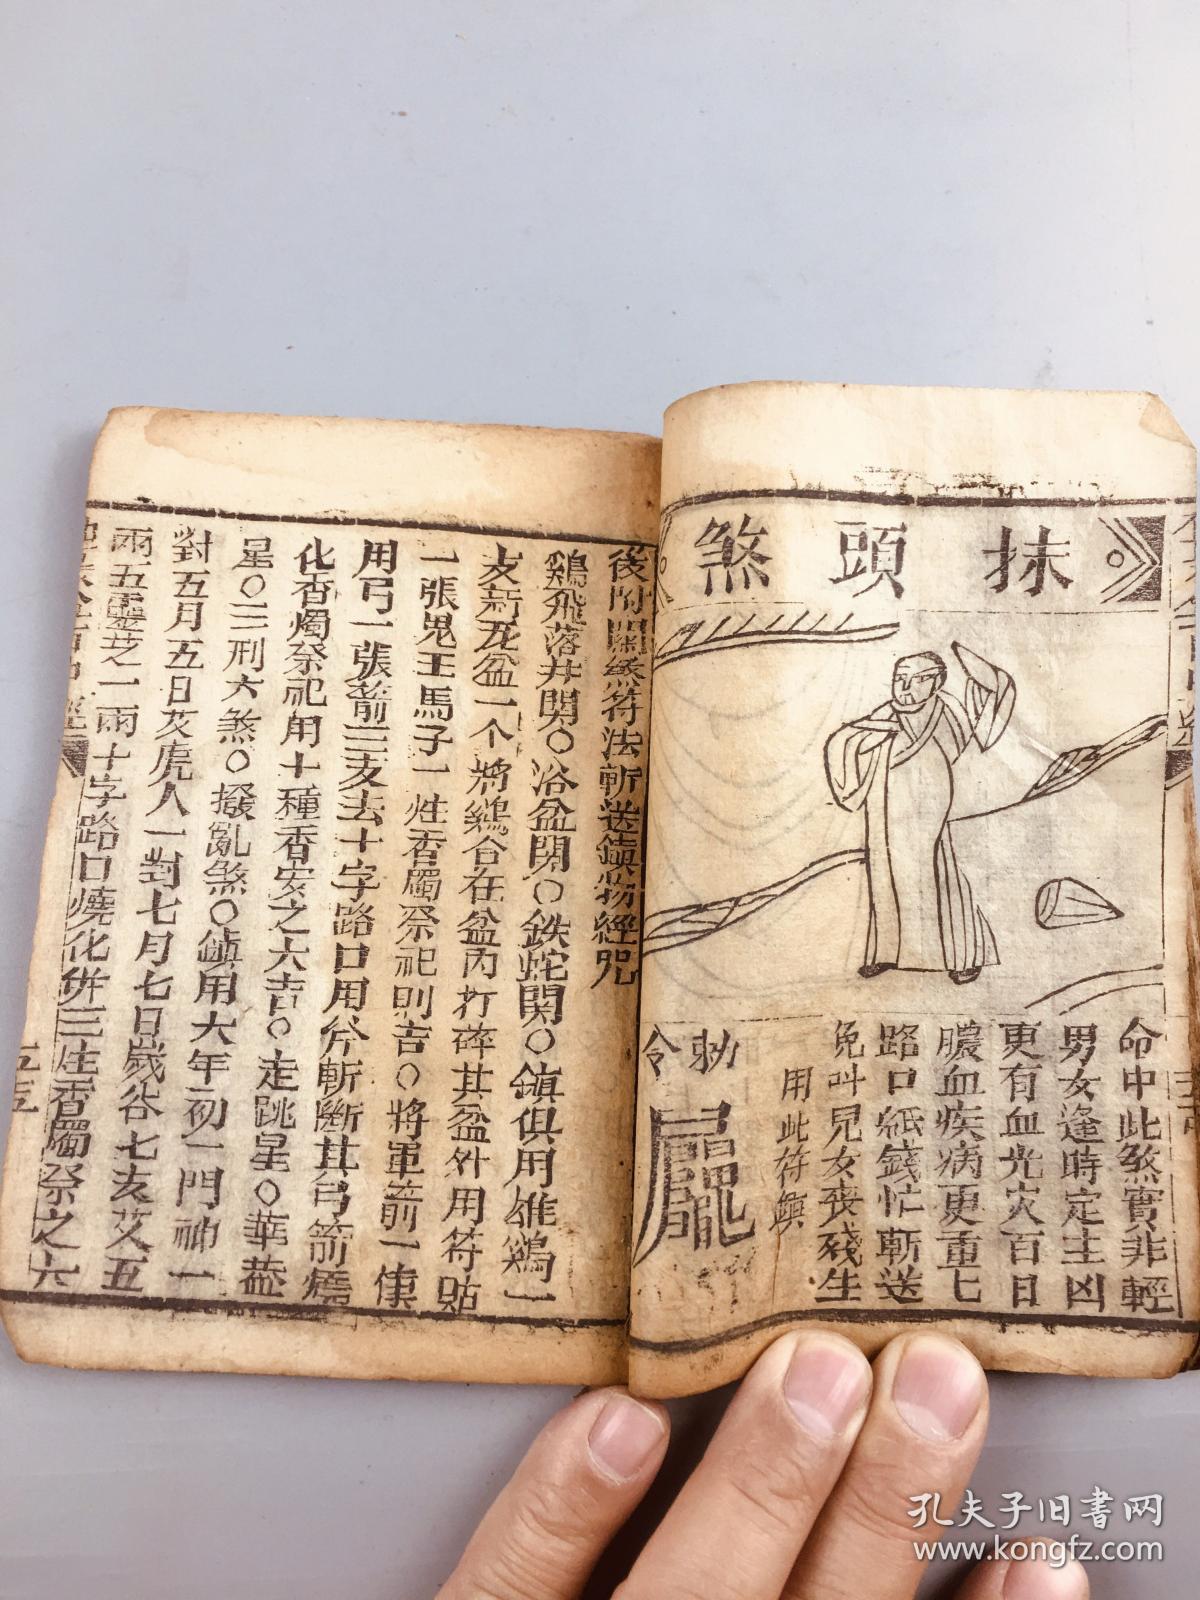 抹頭煞
命中此煞實非輕
男女逢時定主凶
更有血光灾百日
膿血疾病更重七
路口紙錢忙斬送
免叫兒女喪殘生
用此符
勅
令
後附關煞符法斬送鎮物經咒
鷄飛落井関○浴盆関○鉄蛇関○鎮俱用雄鷄一
支新瓦盆一个將鷄合在盆內打碎其盆外用符貼
一張鬼王馬子一性香燭祭祀則吉○將軍箭一俱
用弓一張箭三支去十字路口用斧斬斷其弓箭燒
化香燭祭祀用十種香安之大吉○走跳星○華盖
星○三刑六煞○撥亂煞○鎮用大年初一門神一
對五月五日艾虎人一對七月七日歲谷七支艾五
兩五靈芝一兩十字路口燒化併三牲香燭祭之大
孔夫子旧书网
www.kongfz.com